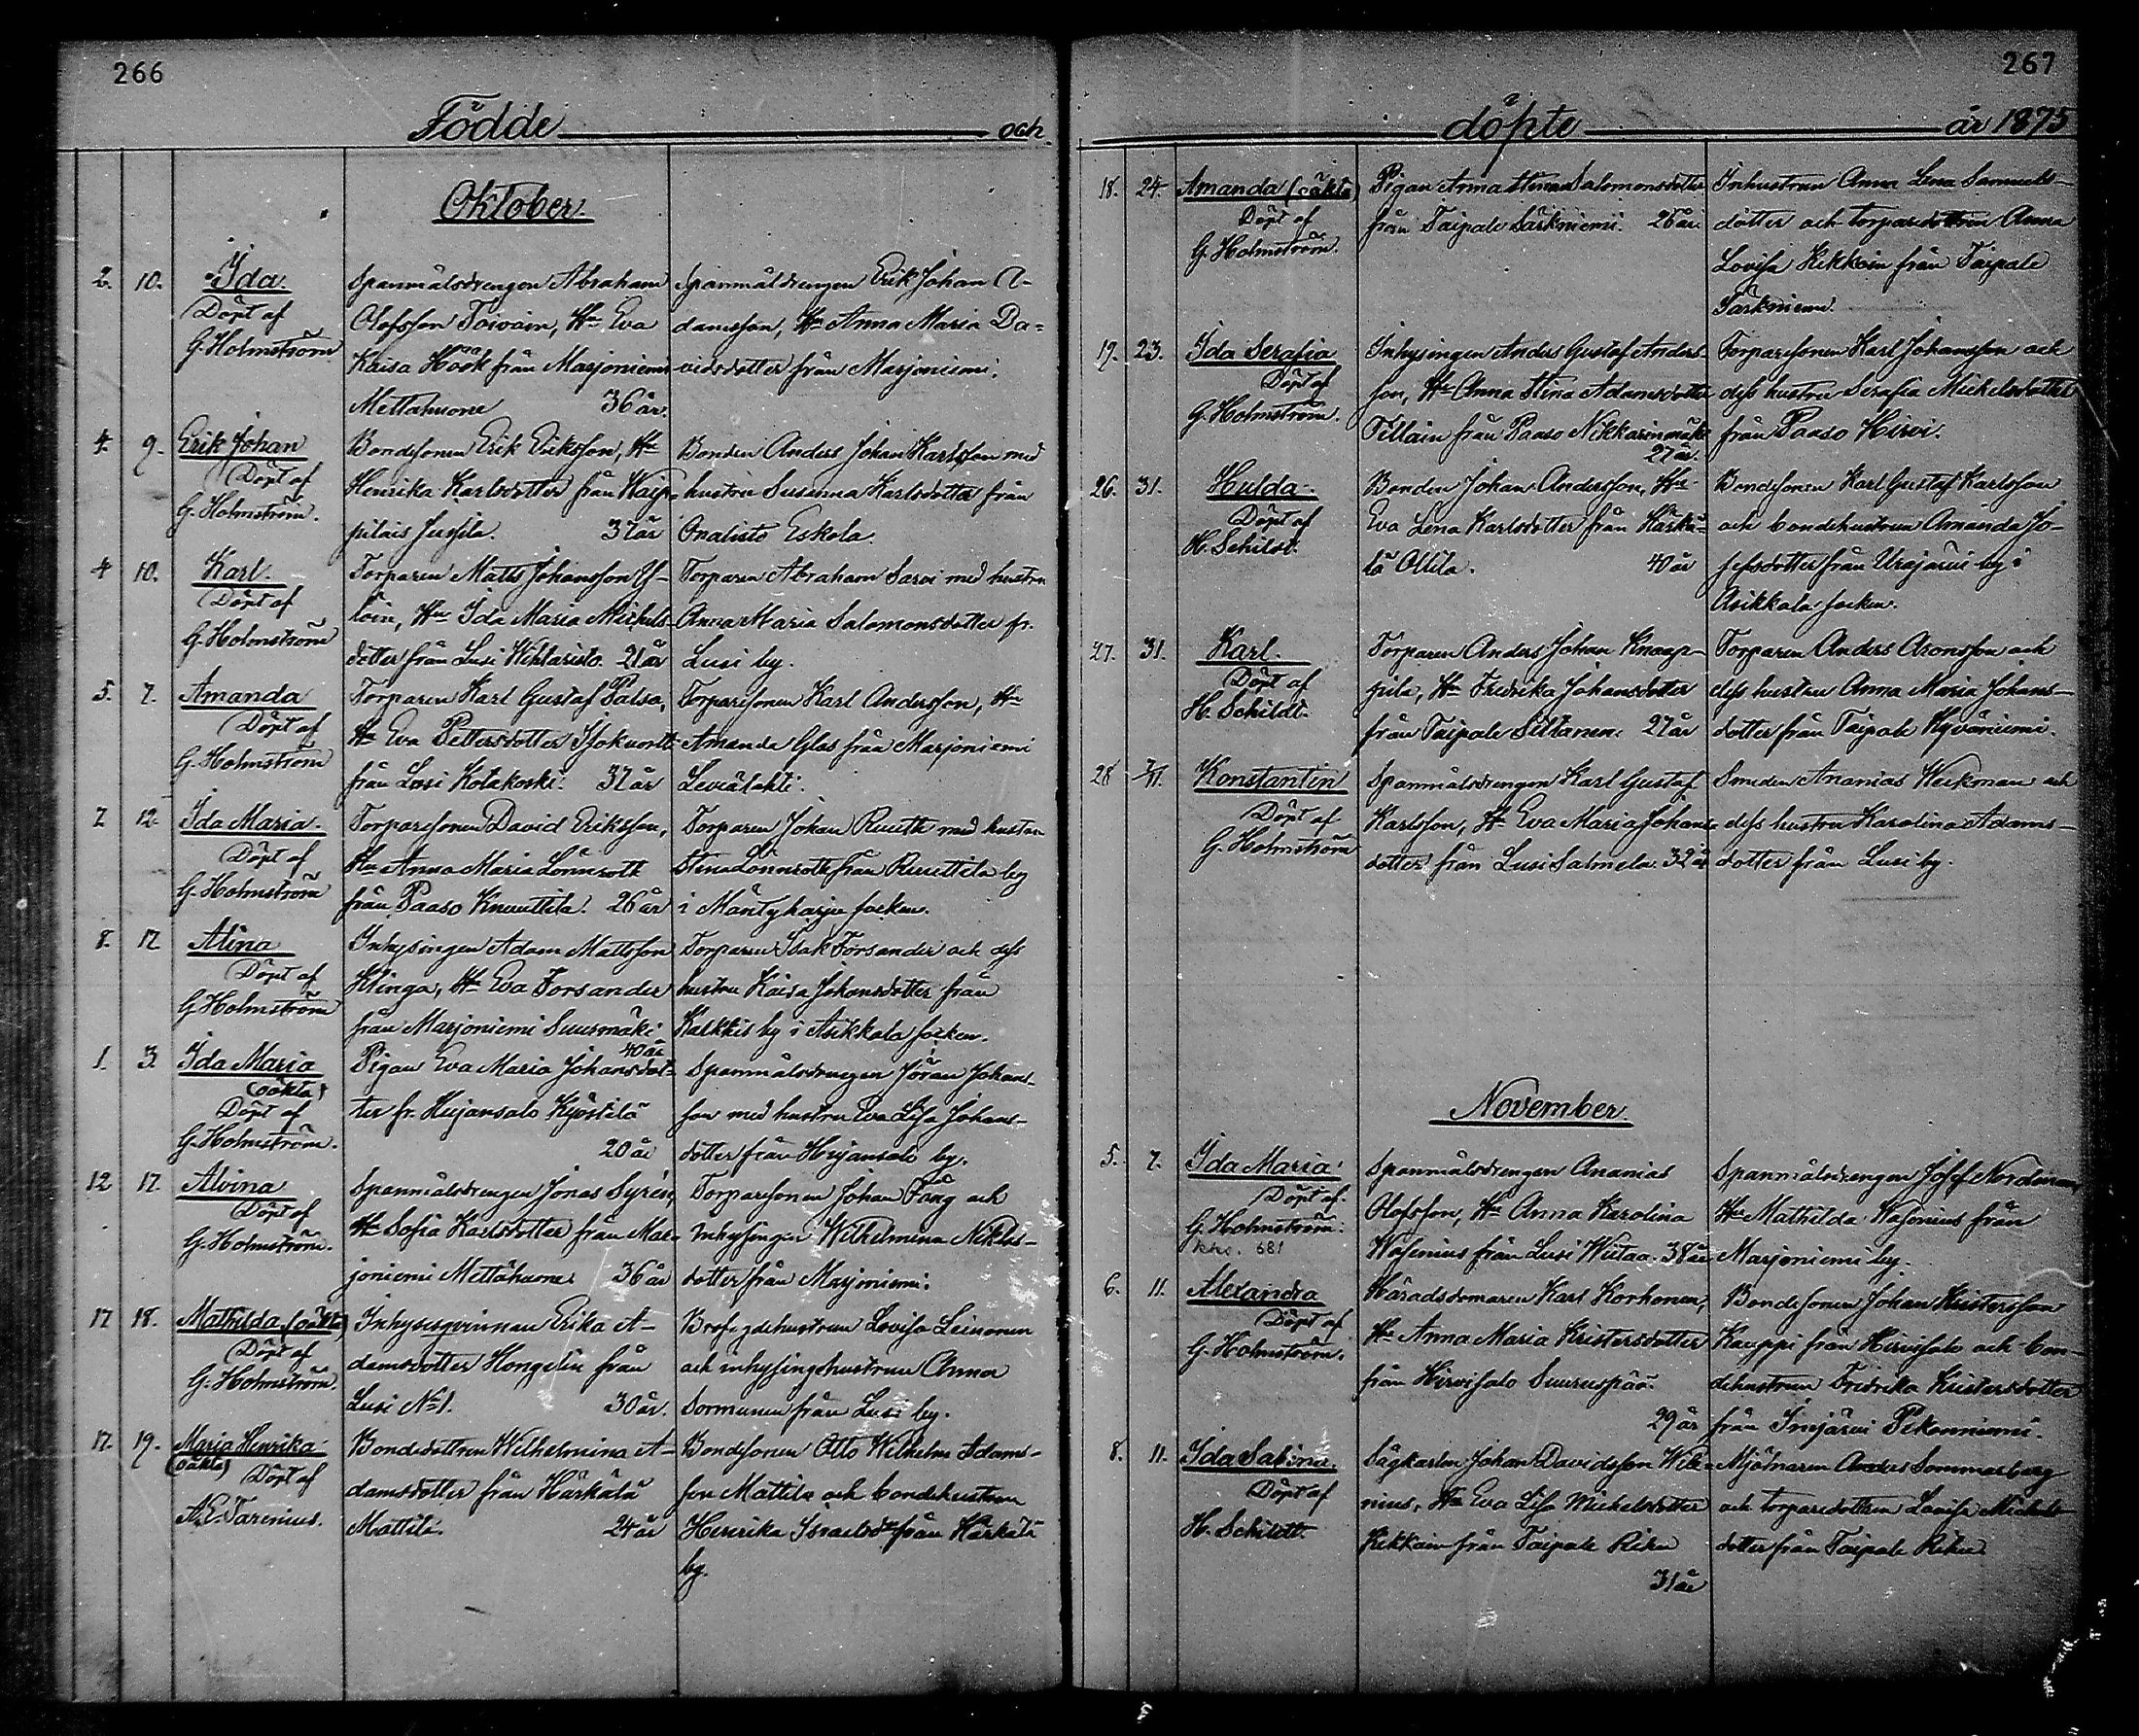 266
Födde och
Oktober.
2. 10. Ida.
Döpt af
G. Holmström
Spanmålsdrengen Abraham
Olofsson Toivain, Hu Eva
Kaisa Höök från Marjoniemi
36 år.
Spanmåldrengen Erik Johan A-
damsson, Hu Anna Maria Da-
vidsdotter från Marjoniemi.
4. 9. Erik Johan
Döpt af
G. Holmström.
Bondesonen Erik Eriksson, Hu
Henrika Karlsdotter från Waip-
pilais Jussila. 37 år
Bonden Anders Johan Karlsson med
hustru Susanna Karlsdotter från
Onalisto Eskola.
4 10. Karl.
Döpt af
G. Holmström
Torparen Matts Johansson Y-
löin, Hu Ida Maria Michels-
dotter från Lusi 21 år
Torparen Abraham Sarvi med hustru
Anna Maria Salomonsdotter fr.
Lusi by.
5. 7. Amanda
Döpt af
G. Holmström
Torparen Karl Gustaf Palsa,
Hu Eva Pettersdotter
från Lusi Kotakoski. 37 år
Torparesonen Karl Andersson, Hu
Amanda Glas från Marjoniemi
Leviälahti.
7 12. Ida Maria.
Döpt af
G. Holmström
Torparesonen David Eriksson,
Hu Anna Maria Lönnroth
från Paaso Knuuttila. 26 år
Torparen Johan Ruuth med hustru
Stina Lönnroth från Ruuttila by
i Mäntyharju socken.
8. 17 Alina
Döpt af
G. Holmström
Inhysingen Adam Mattsson
Klinga, Hu Eva Forsander
från Marjoniemi Suurmäki
40 år
Torparen Isak Forsander och dess
hustru Kaisa Johansdotter från
Kalkkis by i Asikkala socken.
1. 3. Ida Maria
(oäkta)
Döpt af
G. Holmström.
Pigan Eva Maria Johansdot-
ter fr. Hujansalo Kyöstilä
20 år
Spanmålsdrengen Jöran Johans-
son med hustru Eva Lisa Johans-
dotter från Hujansalo by.
12 17. Alvina
Döpt af
G. Holmström.
Spanmålsdrengen Jonas Syrén,
Hu Sofia Karlsdotter från Mar-
joniemi 36 år
Torparesonen Johan Fång och
inhysingen Wilhelmina Niklas-
dotter från Marjoniemi.
17 18. Mathilda (oäkta)
Döpt af
G. Holmström.
Inhysesqvinnan Erika A-
damsdotter Hongelin från
Lusi No 1. 30 år.
hustrun Lovisa Leinonen
och inhysingshustrun Anna
Sormunen från Lusi by.
17. 19. Maria Henrika
(oäkta) Döpt af
Bondedottren Wilhelmina A-
damsdotter från Härkälä
Mattila. 24 år
Bondesonen Otto Wilhelm Adams-
son Mattila och bondehustrun
Henrika Israelsdr från Härkälä
by.
267
döpte år 1875
18. 24. Amanda (oäkta)
Döpt af
G. Holmström.
Pigan Anna Stina Salomonsdotter
från Taipale Särkniemi. 26 år
Inhustrun Anna Lena Samuels-
dotter och torparedottren Anna
Lovisa Kekkoin från Taipale
Särkniemi.
19. 23. Ida Serafia
Döpt af
G. Holmström.
Inhysingen Anders Gustaf Anders-
son, Hu Anna Stina Adamsdotter
Tillain från Paaso Nikkarinmäki
27 år.
Torparesonen Karl Johansson och
dess hustru Serafia Mickelsdotter
från Paaso Hirvi.
26. 31. Hulda
Döpt af
H. Schildt.
Bonden Johan Andersson, Hu
Eva Lena Karlsdotter från Härkä-
lä Ollila. 40 år
Bondesonen Karl Gustaf Karlsson
och bondehustrun Amanda Jo-
sefsdotter från Urajärvi by i
Asikkala socken.
27. 31. Karl.
Döpt af
H. Schildt.
Torparen Anders Johan Knaap-
pila, Hu Fredrika Johansdotter
från Taipale Siltanen. 27 år
Torparen Anders Aronsson och
dess hustru Anna Maria Johans-
dotter från Taipale Hyväniemi.
28 7/11. Konstantin
Döpt af
G. Holmström
Spanmålsdrengen Karl Gustaf
Karlsson, Hu Eva Maria Johans-
dotter från Lusi Salmela. 32 år
Smeden Ananias Weikonen och
dess hustru Karolina Adams-
dotter från Lusi by.
November.
5. 7. Ida Maria
Döpt af
G. Holmström.
681
Spanmålsdrengen Ananias
Olofsson, Hu Anna Karolina
Wasenius från Lusi Wiitaa. 38 år
Spanmålsdrengen Josef Nordman,
Hu Mathilda Wasenius från
Marjoniemi by.
6. 11. Alexandra
Döpt af
G. Holmström.
Häradsdomaren Karl Korhonen,
Hu Anna Maria Kristersdotter
från Hirvisalo Suuruspää.
29 år
Bondesonen Johan Kristersson
Kauppi från Hirvisalo och bon-
dehustrun Fredrika Kristersdotter
från Imjärvi Pekonniemi.
8. 11. Ida Sabina.
Döpt af
H. Schildt.
Sågkarlen Johan Davidsson Wile-
nius, Hu Eva Lisa Mickelsdotter
Kekkoin från Taipale Riku
31 år
Mjölnaren Anders Sommarberg
och torparedottren Lovisa Mickels-
dotter från Taipale Riku